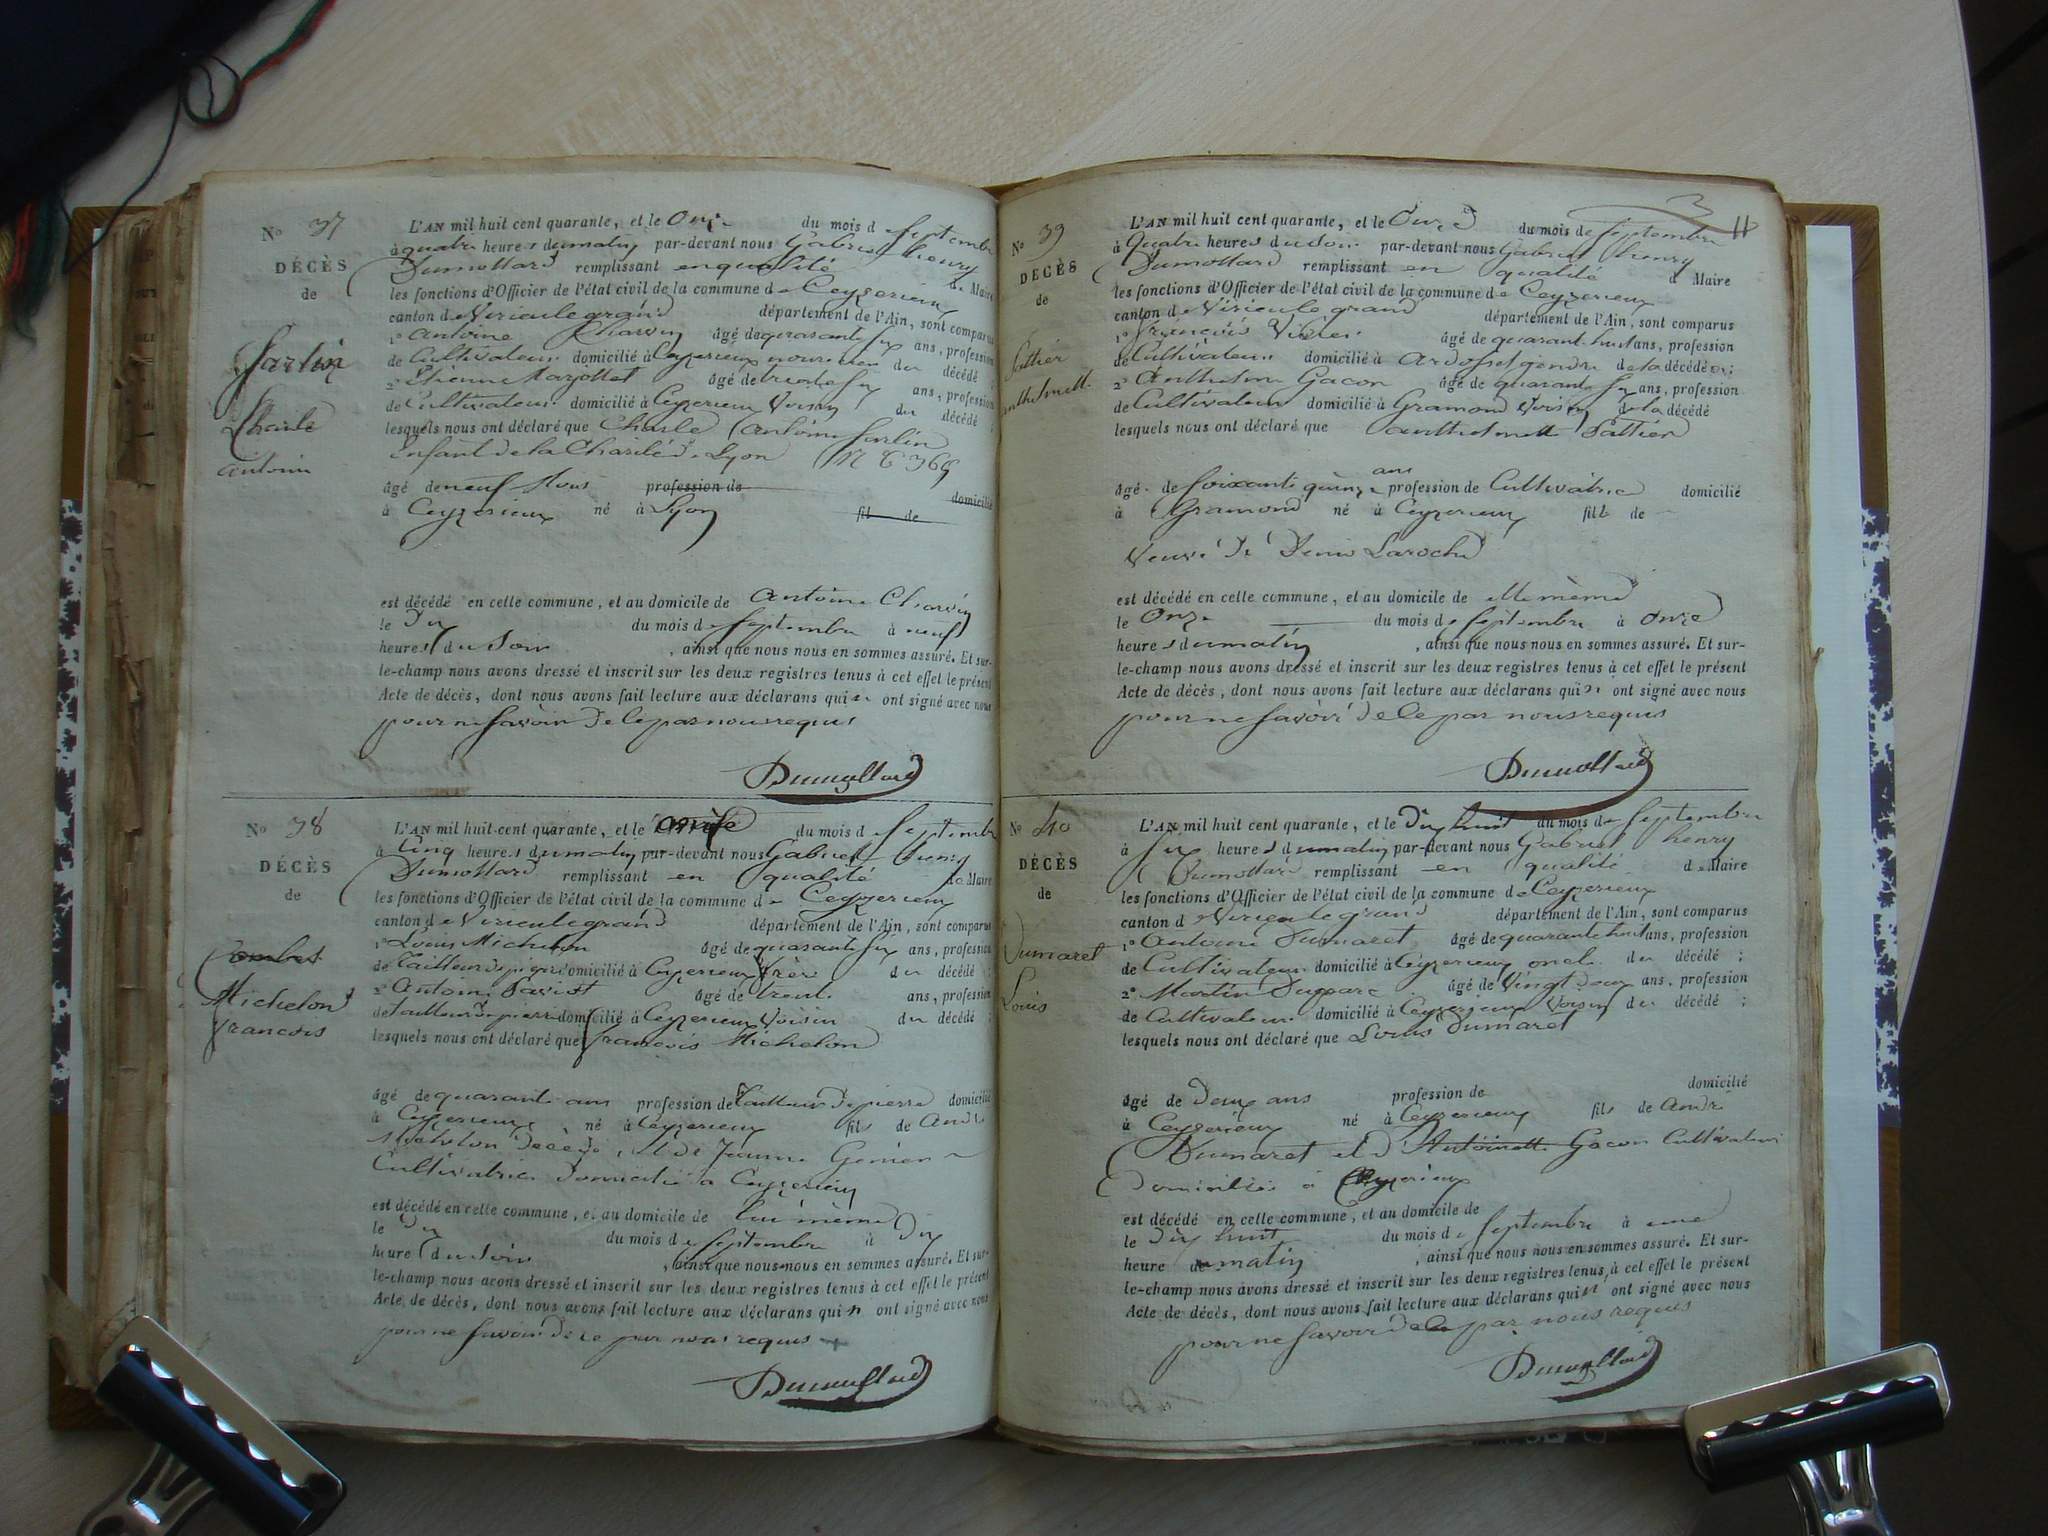 No 37
DÉCÈS
de
Sarlin
Charle
antoine
L'AN mil huit cent quarante, et le Onze du mois de Septembre
à quatre heures du matin par-devant nous Gabriel henry
Dumollard remplissant en qualité de Maire
les fonctions d'Officier de l'état civil de la commune de Ceyzerieux
canton de Virieu le grand département de l'Ain, sont comparus
1o Antoine Charvin âgé de quarante six ans, profession
de Cultivateur domicilié à Ceyzerieux nourricier du décédé ;
2o Etienne Marjollet âgé de trente six ans, profession
de Cultivateur domicilié à Ceyzerieux Voisin du décédé ;
lesquels nous ont déclaré que Charle antoine Sarlin
Enfant de la Charité de Lyon
âgé de neuf Mois profession de domicilié
à Ceyzerieux né à Lyon fil de
est décédé en cette commune, et au domicile de Antoine Charvin
le dix du mois de Septembre à neuf
heures du Soir , ainsi que nous nous en sommes assuré. Et sur-
le-champ nous avons dressé et inscrit sur les deux registres tenus à cet effet le présent
Acte de décès, dont nous avons fait lecture aux déclarans qui n ont signé avec nous
pour ne Savoir de ce par nous requis
Dumollard
No 38
DÉCÈS
de
Michelon
francois
L'AN mil huit cent quarante, et le onze du mois de Septembre
à Cinq heures du matin par-devant nous Gabriel henry
Dumollard remplissant en qualité de Maire
les fonctions d'Officier de l'état civil de la commune de Ceyzerieux
canton de Virieu le grand département de l'Ain, sont comparus
1o Louis Michelon âgé de quarante six ans, profession
de Tailleur de pierre domicilié à Ceyzerieux frère du décédé ;
2o Antoine Saviot âgé de trente ans, profession
de tailleur de pierre domicilié à Ceyzerieux Voisin du décédé ;
lesquels nous ont déclaré que francois Michelon
âgé de quarante ans profession de Tailleur de pierre domicilié
à Ceyzerieux né à Ceyzerieux fils de André
Michelon décédé, et de Jeanne
Cultivatrice domiciliée à Ceyzerieux
est décédé en cette commune, et au domicile de lui même
le dix du mois de Septembre à dix
heure du Soir , ainsi que nous nous en sommes assuré. Et sur-
le-champ nous avons dressé et inscrit sur les deux registres tenus à cet effet le présent
Acte de décès, dont nous avons fait lecture aux déclarans qui n ont signé avec nous
pour ne Savoir de ce par nous requis
Dumollard
11
No 39
DÉCÈS
de
Sattier
anthelmette
L'AN mil huit cent quarante, et le Onze du mois de Septembre
à Quatre heures du Soir par-devant nous Gabriel henry
Dumollard remplissant en qualité d Maire
les fonctions d'Officier de l'état civil de la commune de Ceyzerieux
canton de Virieu le grand département de l'Ain, sont comparus
1o françois âgé de quarante huit ans, profession
de Cultivateur domicilié à Ardosset gendre de la décédée ;
2o Anthelme Gacon âgé de quarante six ans, profession
de Cultivateur domicilié à Gramond Voisin de la décédé
lesquels nous ont déclaré que anthelmette Sattier
âgé de soixante quinze ans profession de Cultivatrice domicilié
à Gramond né à Ceyzerieux fille de
Veuve de Denis Laroche
est décédé en cette commune, et au domicile de elle même
le Onze du mois de Septembre à onze
heures du matin , ainsi que nous nous en sommes assuré. Et sur-
le-champ nous avons dressé et inscrit sur les deux registres tenus à cet effet le présent
Acte de décès, dont nous avons fait lecture aux déclarans qui n ont signé avec nous
pour ne Savoir de ce par nous requis
Dumollard
No 40
DÉCÈS
de
Dumaret
Louis
L'AN mil huit cent quarante, et le Dix huit du mois de Septembre
à Six heures du matin par-devant nous Gabriel henry
Dumollard remplissant en qualité de Maire
les fonctions d'Officier de l'état civil de la commune de Ceyzerieux
canton de Virieu le grand département de l'Ain, sont comparus
1o Antoine Dumaret âgé de quarante huit ans, profession
de Cultivateur domicilié à Ceyzerieux oncle du décédé ;
2o Martin Dupparc âgé de Vingt deux ans, profession
de Cultivateur domicilié à Ceyzerieux Voisin du décédé ;
lesquels nous ont déclaré que Louis Dumaret
âgé de Deux ans profession de domicilié
à Ceyzerieux né à Ceyzerieux fils de André
Dumaret et d'Antoinette Gacon Cultivateurs
Domiciliés à Ceyzerieux
est décédé en cette commune, et au domicile de
le Dix huit du mois de Septembre à une
heure du matin , ainsi que nous nous en sommes assuré. Et sur-
le-champ nous avons dressé et inscrit sur les deux registres tenus à cet effet le présent
Acte de décès, dont nous avons fait lecture aux déclarans qui n ont signé avec nous
pour ne Savoir de ce par nous requis
Dumollard